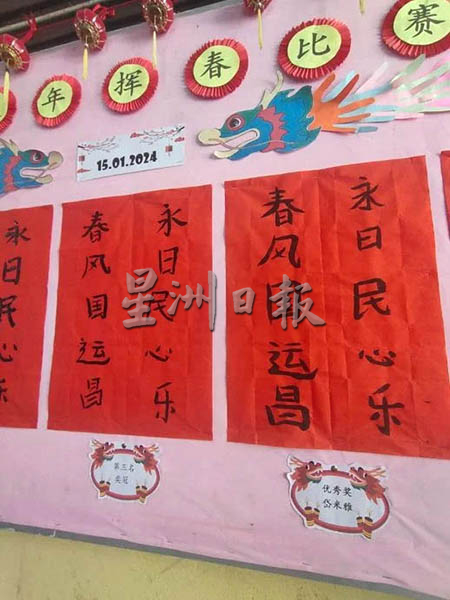 年挥春比赛
15.01.2024
永日民心乐
永日民心乐
春风国运昌
永日民心乐
春风国运昌
星洲日報
第三名
奕冠
优秀奖
岱米雅